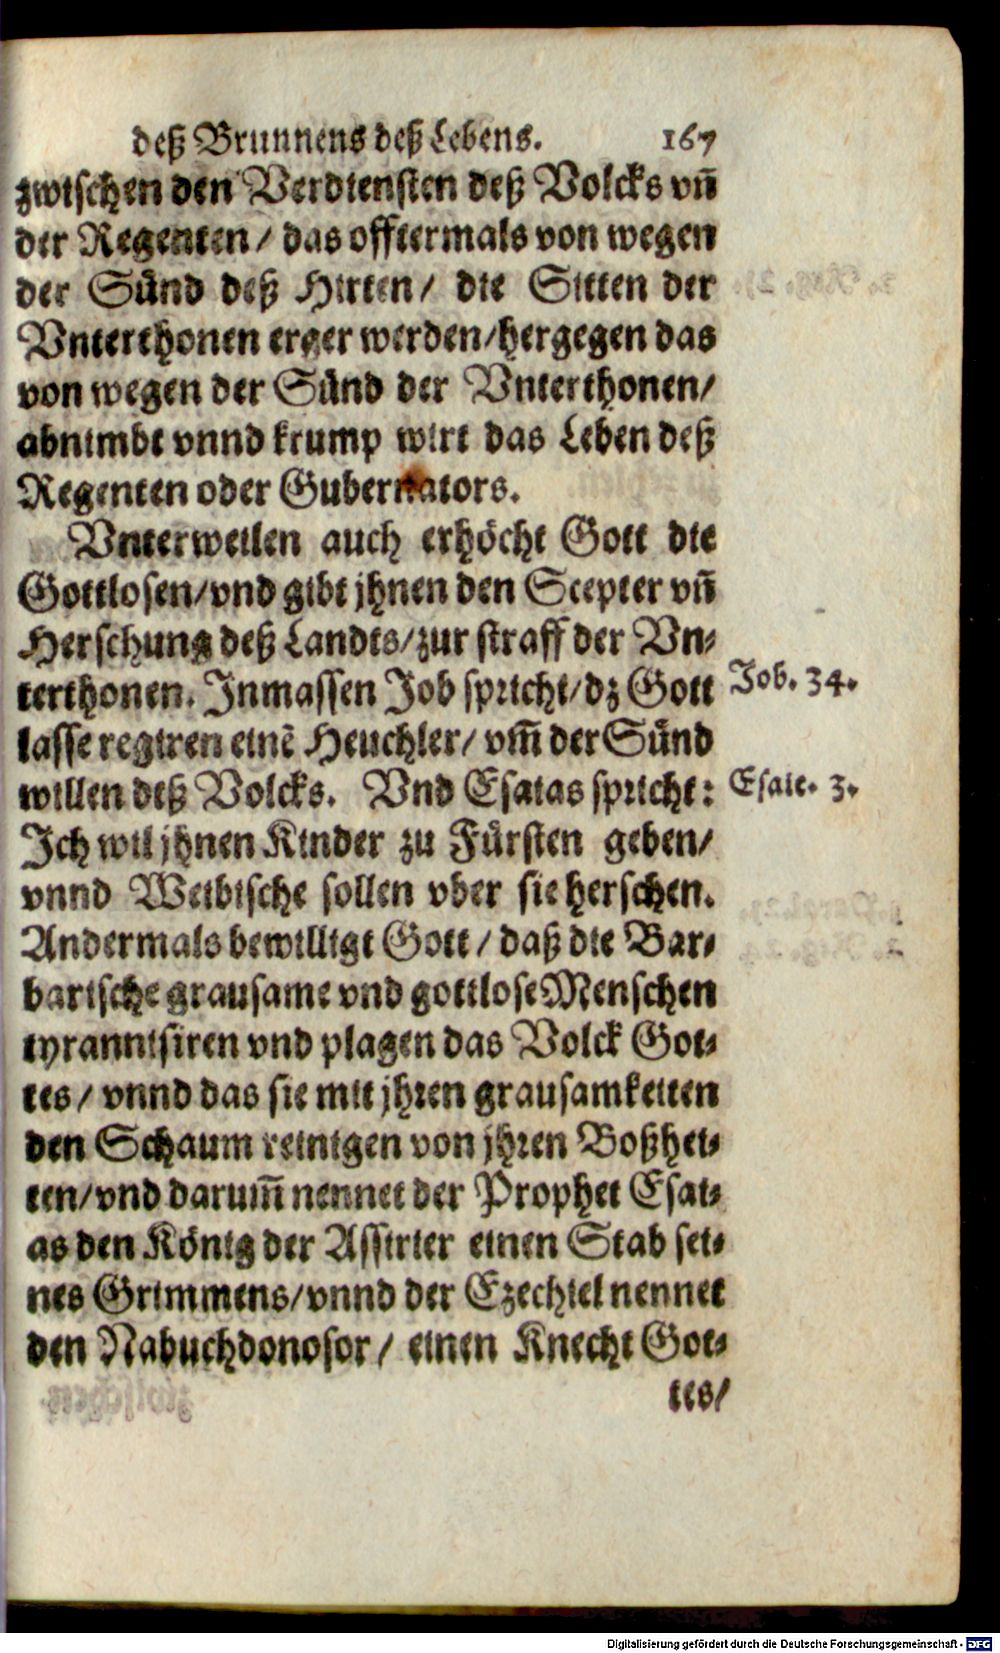 deß Brunnens deß Lebens. 167
zwischen den Verdiensten deß Volcks vñ
der Regenten / das offtermals von wegen
der Sünd deß Hirten / die Sitten der
Vnterthonen erger werden / hergegen das
von wegen der Sünd der Vnterthonen /
abnimbt vnnd krump wirt das Leben deß
Regenten oder Gubernators.
Vnterweilen auch erhöcht Gott die
Gottlosen / vnd gibt jhnen den Scepter vñ
Herschung deß Landts / zur straff der Vn-
terthonen. Inmassen Job spricht / dz Gott
Job. 34.
lasse regiren einē Heuchler / vm̃ der Sünd
willen deß Volcks. Vnd Esaias spricht:
Esaie. 3.
Ich wil jhnen Kinder zu Fürsten geben /
vnnd Weibische sollen vber sie herschen.
Andermals bewilligt Gott / daß die Bar-
barische grausame vnd gottlose Menschen
tyrannisiren vnd plagen das Volck Got-
tes / vnnd das sie mit jhren grausamkeiten
den Schaum reinigen von jhren Boßhei-
ten / vnd darum̃ nennet der Prophet Esai-
as den König der Assirier einen Stab sei-
nes Grimmens / vnnd der Ezechiel nennet
den Nabuchdonosor / einen Knecht Got-
tes /
Digitalisierung gefördert durch die Deutsche Forschungsgemeinschaft - DFG